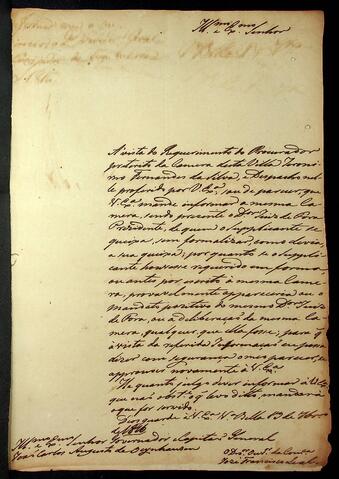 Ill.mo e Ex.mo Senhor
A vista do Requerimento do Procurador
preterito da Camera desta Villa Jeroni-
mo Fernandes da Silva, e Despacho nel-
le proferido por V. Ex.ª, sou de parecer, que
V. Ex.ª mande informar a mesma Ca-
mera, sendo presente o D.or Juiz de Fóra
Prezidente, de quem o Supplicante se
queixa, sem formalizar, como devia,
a sua queixa; por quanto se o Suppli-
cante houvesse requerido em forma,
ou antes por
mera, provavelmente appareceria ou o
mandato positivo do mesmo D.or Juiz
de Fora, ou a deliberação da mesma Ca-
mera, qualquer que ella fosse; para q'
á vista da referida Informação eu possa
dizer com segurança o meu parecer, se
approuver novamente a V. Ex.ª
He quanto julgo dever informar a V. Ex.ª
que mandará
o que for servido.
Deos guarde a V. Ex.ª V.ª Bella 13 de
de 1816
Ill.mo e Ex.mo Senhor Governador e Capitão General
João Carlos Augusto de Oeynhausen
O D.or Ouv.or
José Francisco Leal